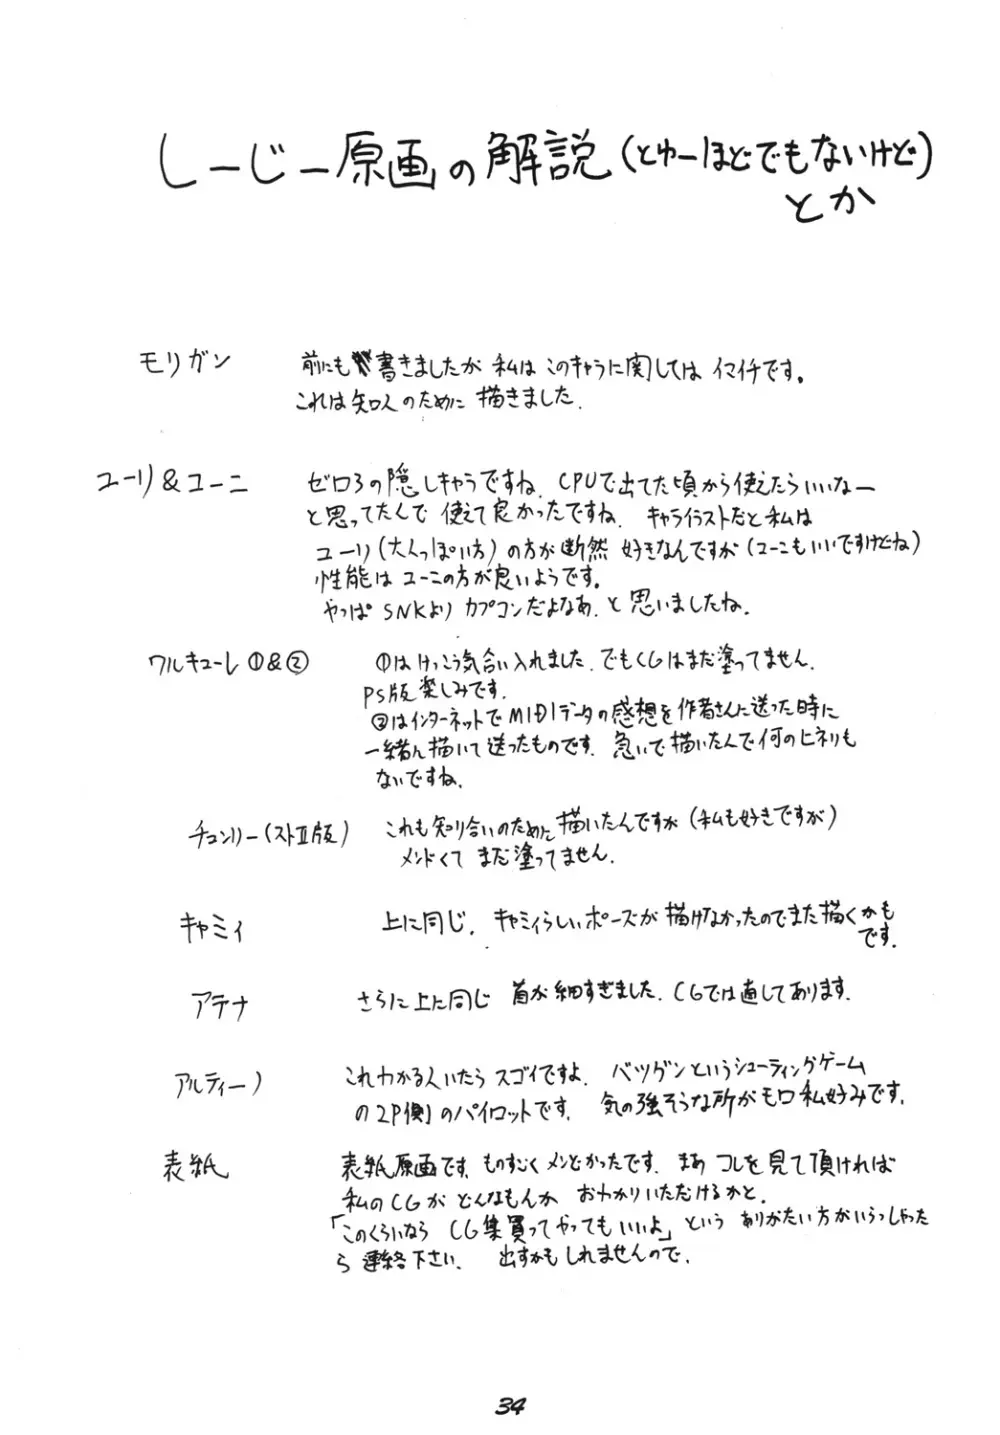 しーじー原画の解説(とゆーほどでもないけど)
とか
モリガン 前にも書きましたが 私は このキャラに関しては イマイチです。
これは知人のために 描きました.
ユーリ&ユーニ ゼロ3の隠しキャラですね. CPUで出てた頃から使えたらいいなー
と思ってたんで 使えて良かったですね. キャライラストだと私は
ユーリ(大人っぽい方)の方が断然 好きなんですが(ユーニもいいですけどね)
性能は ユーニの方が良いようです。
やっぱ SNKより カプコンだよなあ. と 思いましたね.
ワルキューレ①&② ①はけっこう気合い入れました. でもCGはまだ塗ってません.
PS版楽しみです.
②はインターネットでMIDIデータの感想を作者さんに送った時に
一緒に描いて送ったものです. 急いで描いたんで何のヒネリも
ないですね.
チュンリー(ストⅡ版) これも知り合いのために描いたんですが(私も好きですが)
メンドくて まだ塗ってません.
キャミィ 上に同じ. キャミィらしいポーズが 描けなかったのでまた描くかも
です.
アテナ さらに上に同じ 首が細すぎました. CGでは直してあります.
アルティーノ これわかる人いたら スゴイですよ. バツグンというシューティングゲーム
の2P側のパイロットです. 気の強そうな所がモロ私好みです.
表紙 表紙原画です. ものすごくメンどかったです. まあ コレを見て頂ければ
私のCGが どんなもんか おわかりいただけるかと.
「このくらいなら CG集買ってやってもいいよ」という ありがたい方がいらっしゃった
ら 連絡下さい. 出すかもしれませんので.
34